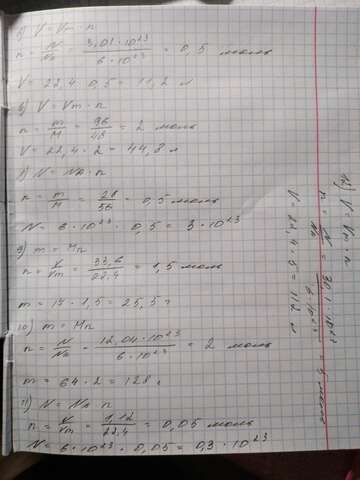 5) V = Vm · n
n = N/Na = 3,01 · 10²³ / 6 · 10²³ = 0,5 моль
V = 22,4 · 0,5 = 11,2 л
6) V = Vm · n
n = m/M = 96/48 = 2 моль
V = 22,4 · 2 = 44,8 л
N = Na · n
n = m/M = 28/56 = 0,5 моль
N = 6 · 10²³ · 0,5 = 3 · 10²³
9) m = Mn
n = V/Vm = 33,6/22,4 = 1,5 моль
m = 17 · 1,5 = 25,5 г
10) m = Mn
n = N/Na = 12,04 · 10²³ / 6 · 10²³ = 2 моль
m = 64 · 2 = 128 г
11) N = Na n
n = V/Vm = 1,12/22,4 = 0,05 моль
N = 6 · 10²³ · 0,05 = 0,3 · 10²³
V = Vm · n
n = N/Na = 30,1 · 10²³ / 6 · 10²³ = 5 моль
V = 22,4 · 5 = 112 л